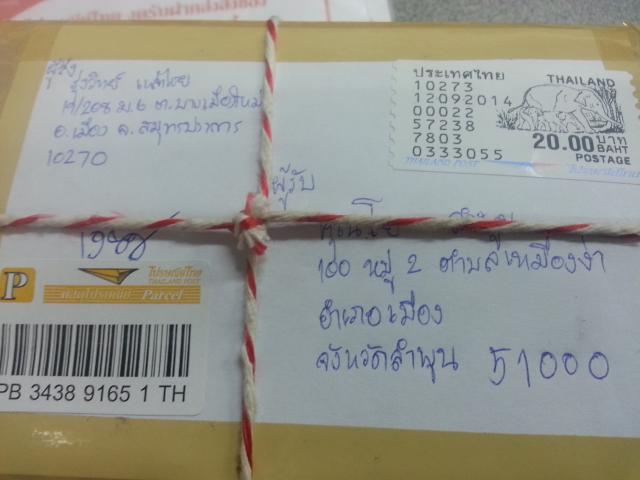 ผู้ส่ง
รุ่งวิทย์
19/208 ม.6 ต.บางเมืองใหม่
อ.เมือง จ.สมุทรปราการ
10270
ประเทศไทย
THAILAND
10273
12092014
00022
57238
7803
0333055
20.00 บาท
BAHT
POSTAGE
THAILAND POST
ไปรษณีย์ไทย
ผู้รับ
100 หมู่ 2 ตำบลเหมืองง่า
อำเภอเมือง
จังหวัดลำพูน 51000
P
ไปรษณีย์ไทย
THAILAND POST
Parcel
PB 3438 9165 1 TH